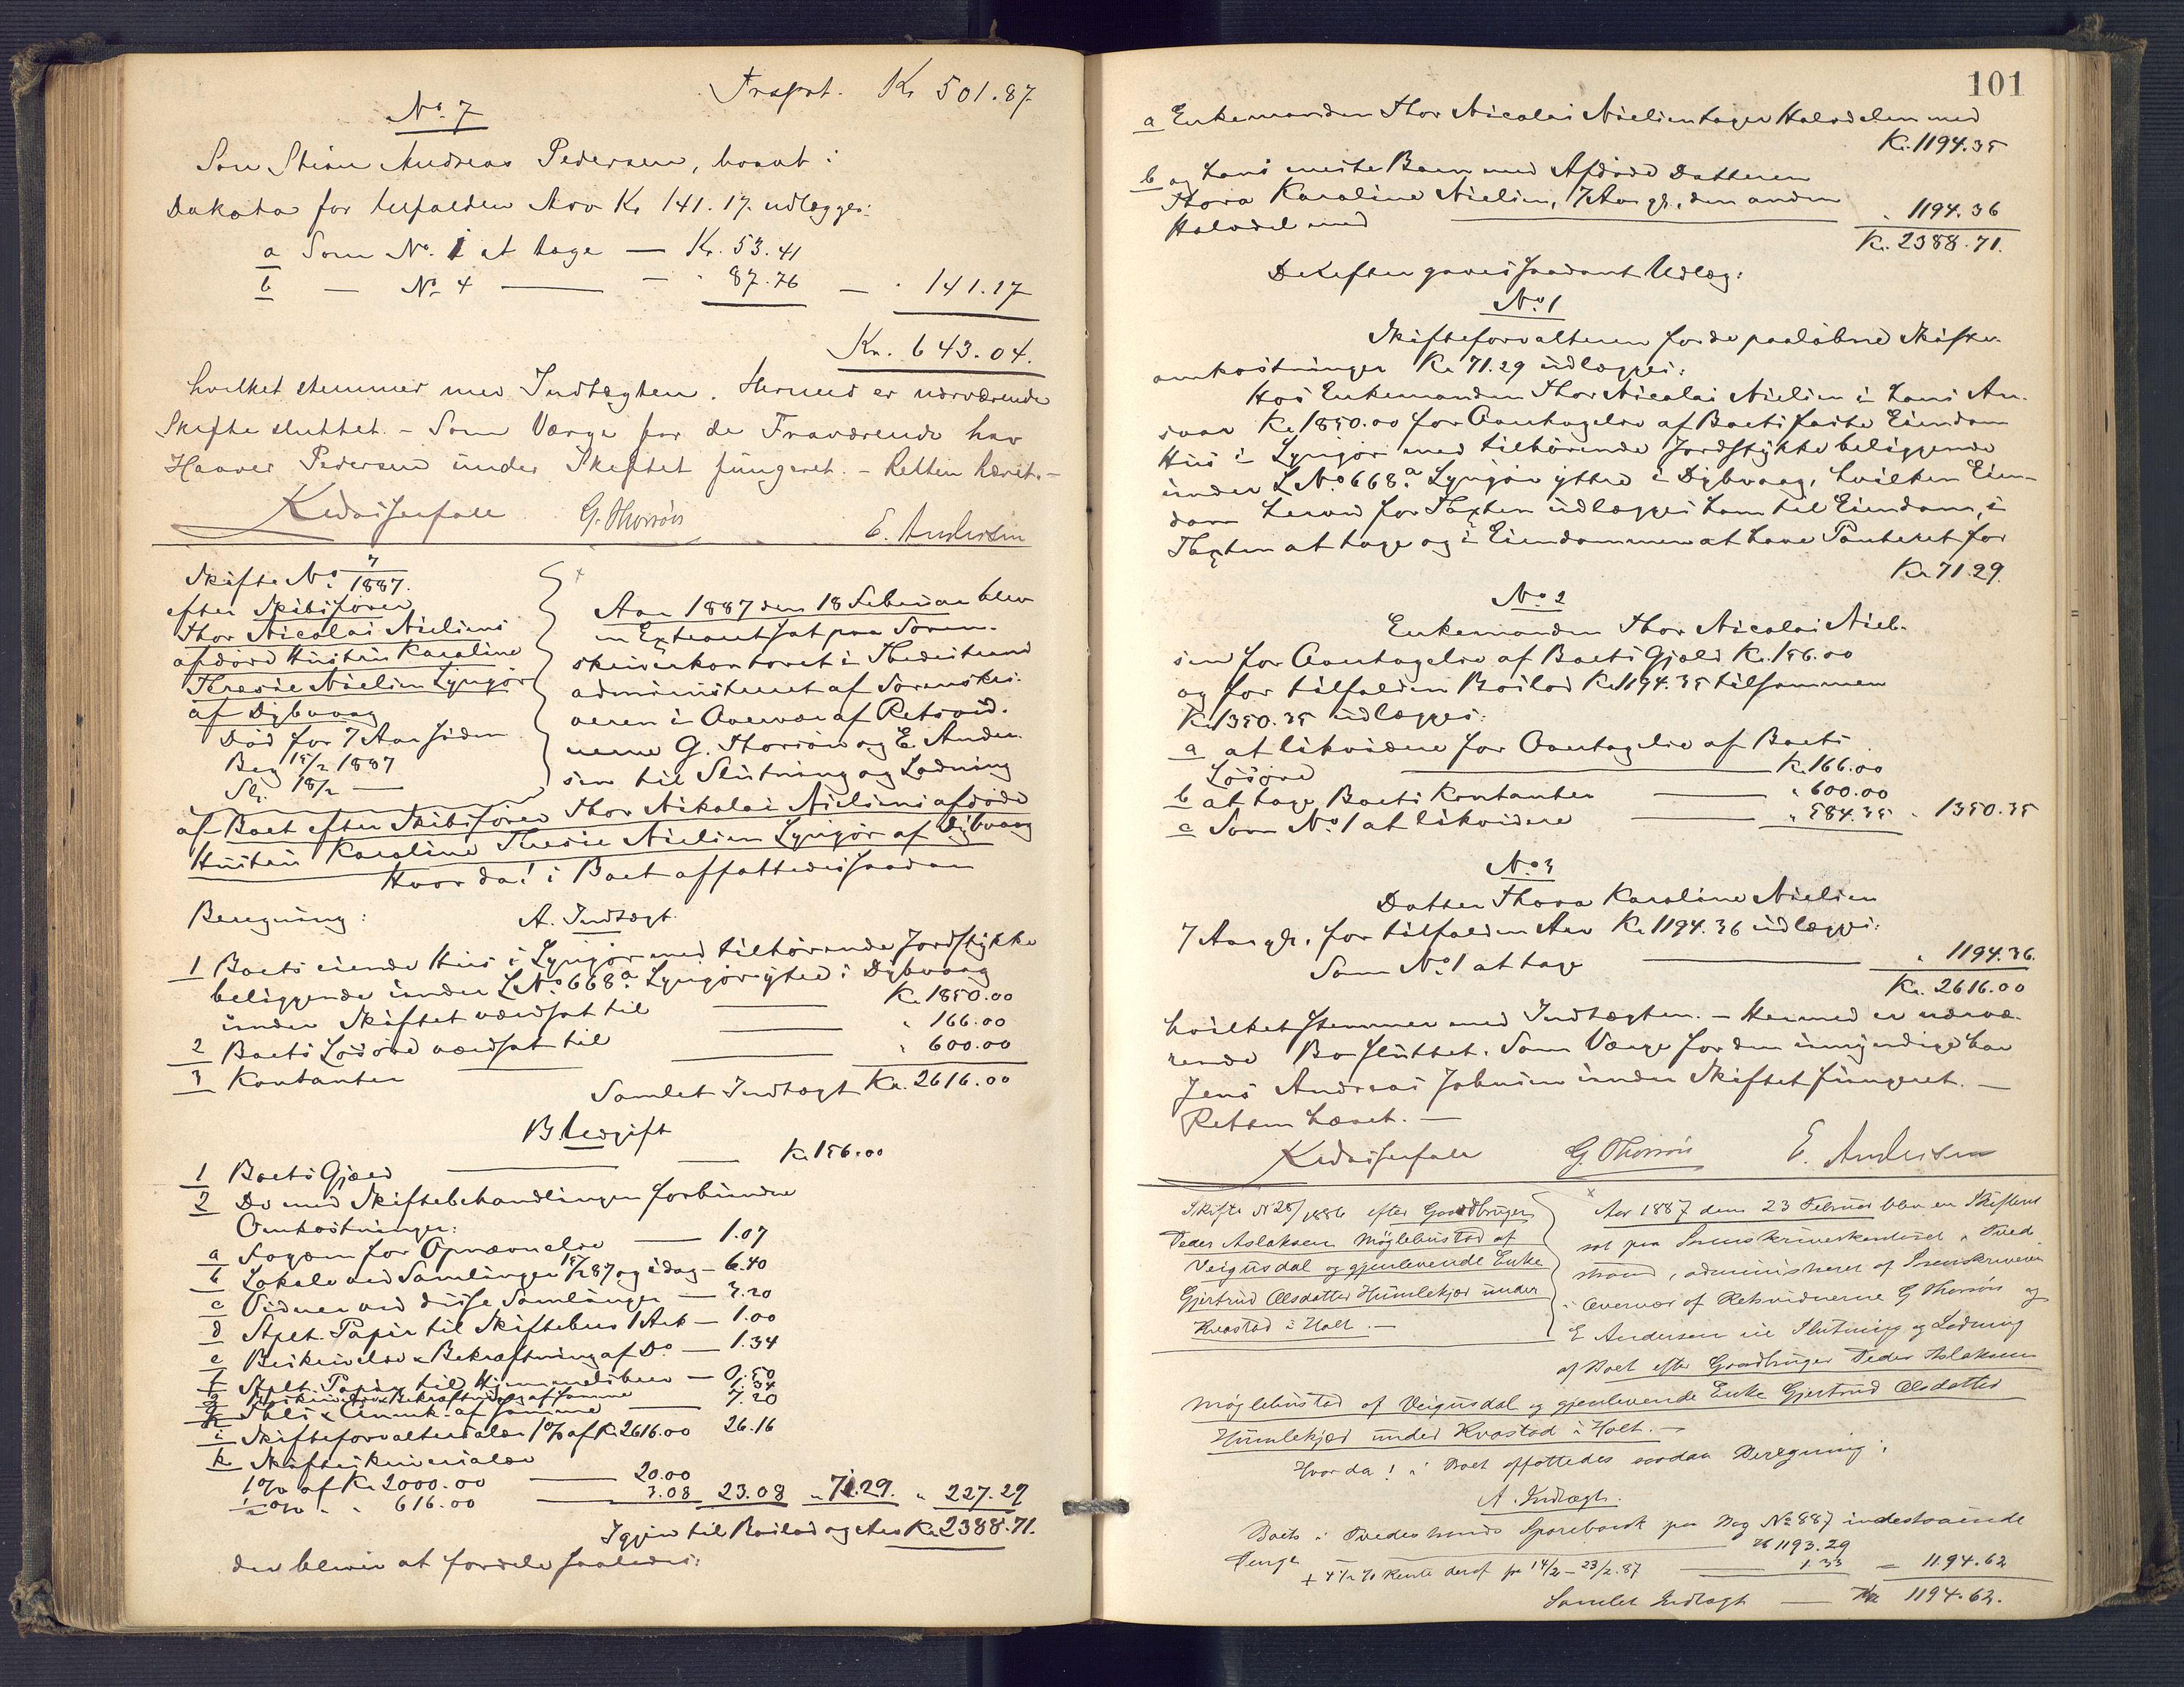 Trsprt. Kr 501.87
No. 7
Søn Stian Andreas Pedersen, bosat i
Dakota for tilfalden Arv Kr 141.17. udlægges:
a Som No. 1 at tage — Kr. 53.41
b — No 4 — - " 87.76 — " 141.17
Kr. 643.04.
hvilket stemmer med Indtægten. Hermed er nærværende
Skifte sluttet. – Som Værge for de Fraværende har
Haaver Pedersen under Skiftet fungeret. – Retten hævet. –
G. Thorsön E. Andersen
Skifte No 7/1887.
efter Skibsfører
Thor Nicolai Nielsens
afdøde Hustru Karoline
Therese Nielsen Lyngør
af Dybvaag
Død for 7 Aar siden
Beg 15/2 1887
Sl. 18/2 —
Aar 1887 den 18 Februar blev
en Extraret sat paa Soren-
skriverkontoret i Tvedestrand
administreret af Sorenskri-
veren i Overvær af Retsvid-
nerne G. Thorsön og E. Ander-
sen til Slutning og Lodning
af Boet efter Skibsfører Thor Nikolai Nielsens afdøde
Hustru Karoline Therese Nielsen Lyngør af Dybvaag
Hvorda! i Boet affattedes saadan
Beregning:
A. Indtægt.
1 Boets eiende Hus i Lyngør med tilhørende Jordstykke
beliggende under L No 668a Lyngør ytre i Dybvaag
under Skiftet værdsat til — Kr. 1850.00
2 Boets Løsøre værdsat til — " 166.00
3 Kontanter — " 600.00
Samlet Indtægt Kr. 2616.00
B Udgift
1 Boets Gjæld — Kr. 156.00
2 Do med Skiftebehandlingen forbundne
Omkostninger:
a Fogden for Opnævnelse — 1.07
b Lokale ved Samlinger 15/2 87 og idag — 6.40
c Vidner ved disse Samlinger — 3.20
d Stplt. Papir til Skiftebrev 1 Ark — 1.00
e Beskrivelse & Bekræftning af Do — 1.34
f Stplt. Papir til Hjemmelsbrev — 0.50
g Beskrivelse & Bekræftning af samme 1.34
h Thls & Anmk. af samme — 7.20
i Skifteforvaltersalær 1% af Kr 2616.00 26.16
k Skifteskriversalær
1% af Kr 2000.00 — 20.00
½ % " " 616.00 — 3.08 23.08 " 71.29. " 227.29
Igjen til Boslod og Arv Kr. 2388.71.
der bliver at fordele saaledes:
101
a Enkemanden Thor Nicolai Nielsen tager Halvdelen med
Kr. 1194.35
b og hans eneste Barn med Afdøde Datteren
Thora Karoline Nielsen, 7 Aar gl., den anden
Halvdel med — " 1194.36
Kr. 2388.71.
Derefter gaves saadant Udlæg:
No 1
Skifteforvalteren for de paaløbne Skifte-
omkostninger Kr 71.29 udlægges:
Hos Enkemanden Thor Nicolai Nielsen i hans An-
svar Kr 1850.00 for Overtagelse af Boets faste Eiendom
Hus i Lyngør med tilhørende Jordstykke beliggende
under L No 668a Lyngør ytre i Dybvaag, hvilken Eien-
dom herved for Taxten udlægges ham til Eiendom, i
Taxten at tage og i Eiendommen at have Panteret for
Kr 71.29.
No 2
Enkemanden Thor Nicolai Niel-
sen for Overtagelse af Boets Gjæld Kr. 156.00
og for tilfalden Boslod Kr 1194.35 tilsammen
Kr 1350.35 udlægges:
a at likvidere for Overtagelse af Boets
Løsøre — Kr. 166.00
b at tage Boets Kontanter — " 600.00
c Som No 1 at likvidere — " 584.35 " 1350.35
No 3
Datter Thora Karoline Nielsen
7 Aar gl. for tilfalden Arv Kr 1194.36 udlægges:
Som No 1 at tage — " 1194.36.
Kr. 2616.00
hvilket stemmer med Indtægten. – Hermed er nærvæ-
rende Bo sluttet. Som Værge for den umyndige har
Jens Andreas Johnsen under Skiftet fungeret. —
Retten hævet. —
G. Thorsön E. Andersen
Skifte N 28/1886 efter Gaardbruger
Peder Aslaksen Møglebustad af
Veigusdal og gjenlevende Enke
Gjertrud Olsdatter Humlekjær under
Kvastad i Holt. —
Aar 1887 den 23 Februar blev en Skifteret
sat paa Sorenskriverkontoret i Tvede
strand, administreret af Sorenskriveren
i Overvær af Retsvidnerne G Thorsön og
E Andersen til Slutning og Lodning
af Boet efter Gaardbruger Peder Aslaksen
Møglebustad af Veigusdal og gjenlevende Enke Gjertrud Olsdatter
Humlekjær under Kvastad i Holt. —
Hvorda! i Boet affattedes saadan Beregning:
A. Indtægt.
Boets i Tvedestrands Sparebank paa Bog No 887 indestaaende
Penge — Kr 1193.29
+ 4½ % Rente deraf fra 14/2 – 23/2.87 — 1.33 — 1194.62
Samlet Indtægt — Kr 1194.62.